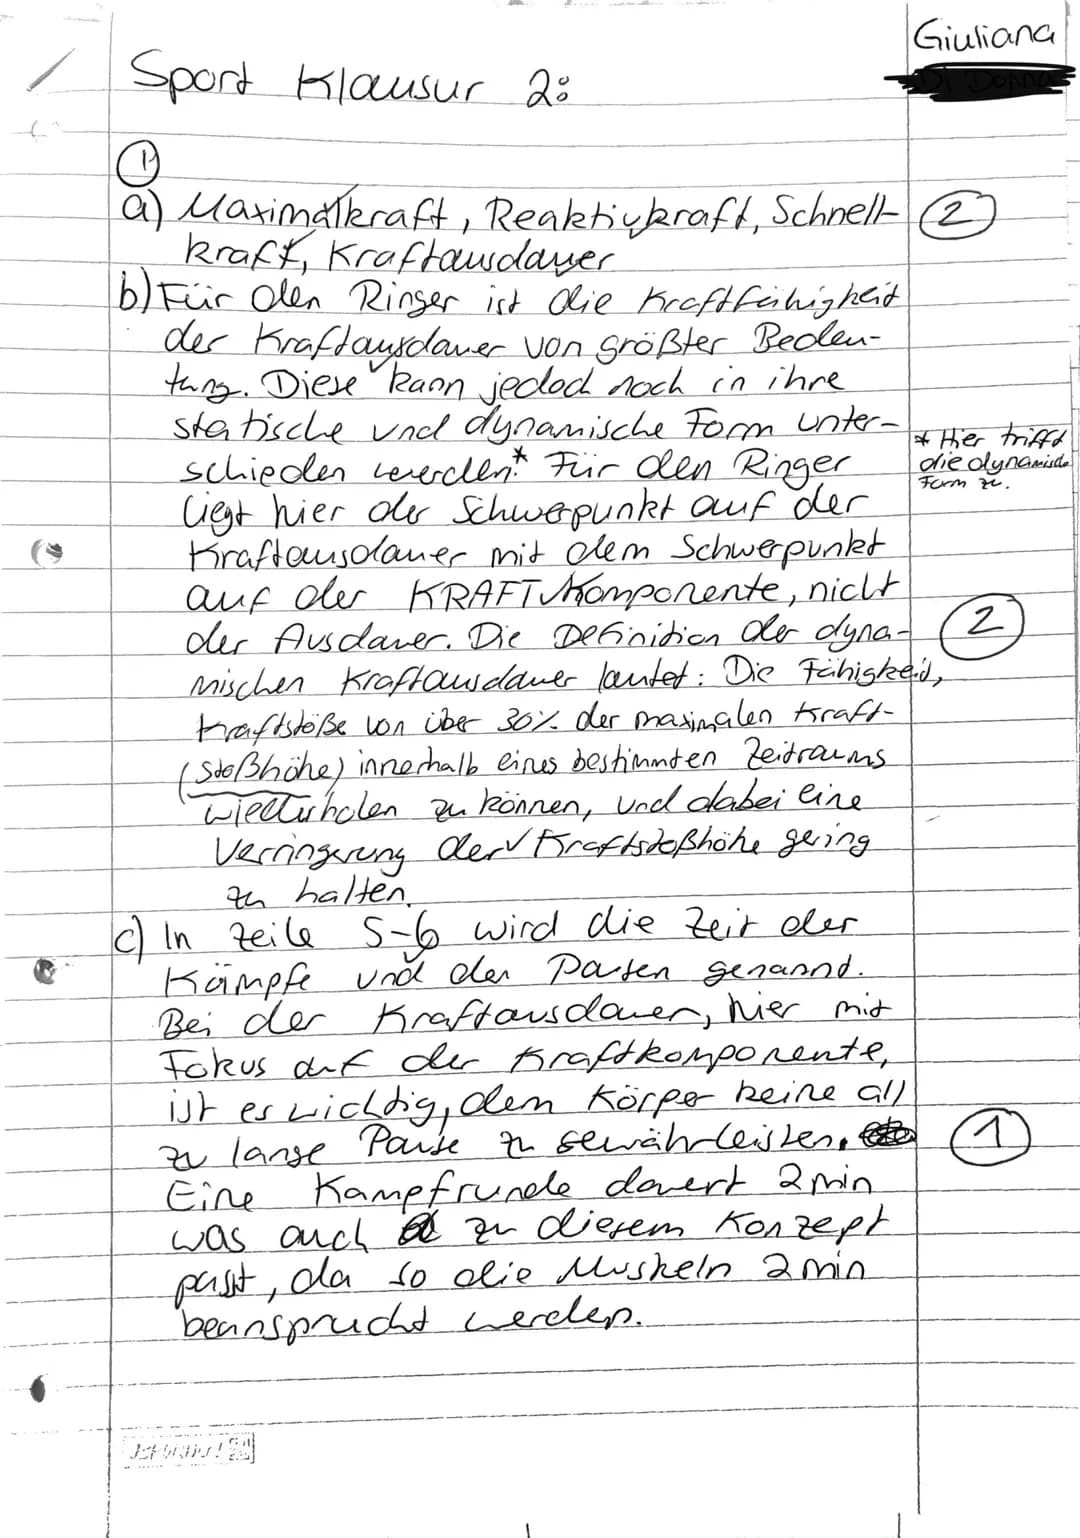 Giuliana
Sport Klausur 2:
1
a) Maximalkraft, Reaktivkraft, Schnell-
kraft, Kraftausdauer
2
b) Für den Ringer ist die Kraftfähigkeit
der Kraftausdauer von größter Bedeu-
tung. Diese kann jedoch noch in ihre
statische und dynamische Form unter-
schieden werden.* Für den Ringer
* Hier trifft
die dynamische
Form zu.
liegt hier der Schwerpunkt auf der
Kraftausdauer mit dem Schwerpunkt
auf der KRAFTKomponente, nicht
der Ausdauer. Die Definition der dyna-
2
mischen Kraftausdauer lautet: Die Fähigkeit,
Kraftstöße von über 30% der maximalen Kraft-
(stoßhöhe) innerhalb eines bestimmten Zeitraums
wiederholen zu können, und dabei eine
Verringerung der Kraftstoßhöhe gering
zu halten.
c) In Zeile 5-6 wird die Zeit der
Kämpfe und der Pausen genannt.
Bei der Kraftausdauer, hier mit
Fokus auf der Kraftkomponente,
ist es wichtig, dem Körper keine all
zu lange Pause zu gewährleisten.
1
Eine Kampfrunde dauert 2 min
was auch zu diesem Konzept
passt, da so die Muskeln 2 min
beansprucht werden.